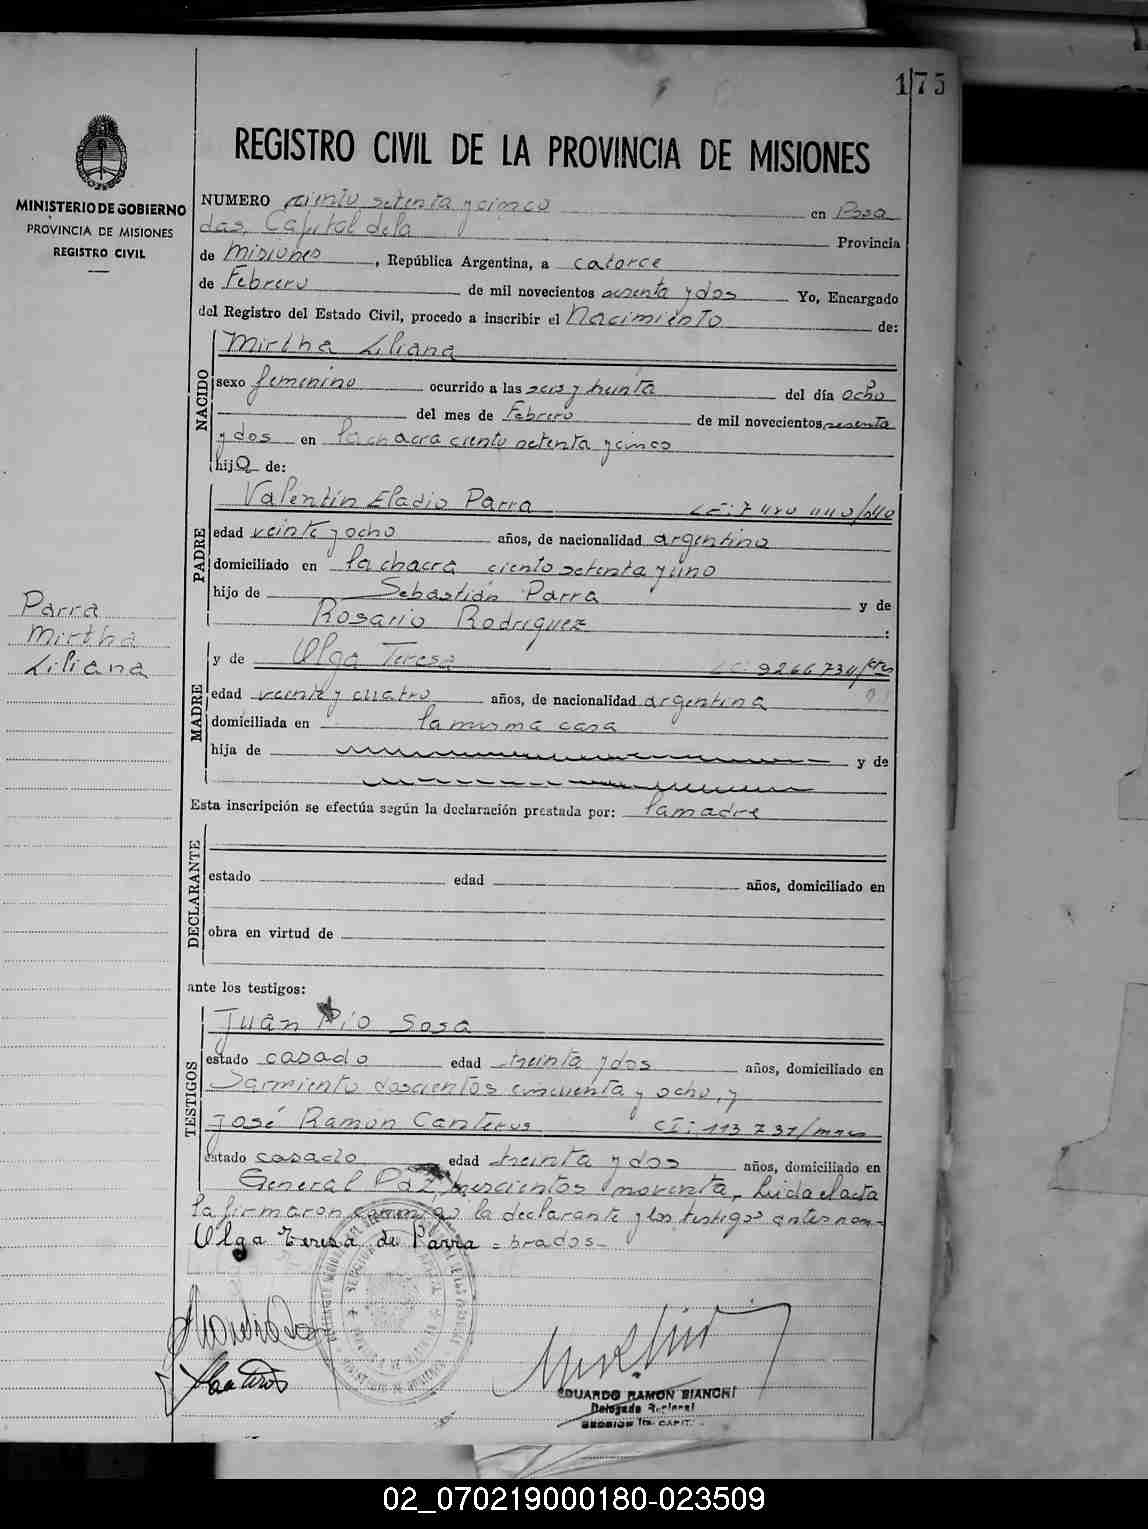 175
REGISTRO CIVIL DE LA PROVINCIA DE MISIONES
MINISTERIO DE GOBIERNO
PROVINCIA DE MISIONES
REGISTRO CIVIL
NUMERO ciento setenta y cinco en Posa
das, Capital de la Provincia
de Misiones, República Argentina, a catorce
de Febrero de mil novecientos sesenta y dos Yo, Encargado
del Registro del Estado Civil, procedo a inscribir el Nacimiento de:
NACIDO
Mirtha Liliana
sexo femenino ocurrido a las seis y treinta del día ocho
del mes de Febrero de mil novecientos sesenta
y dos en la chacra ciento setenta y cinco
hija de:
PADRE
Valentín Eladio Parra
edad veinte y ocho años, de nacionalidad argentino
domiciliado en la chacra ciento setenta y uno
hijo de Sebastián Parra y de
Rosario Rodriguez :
Parra
Mirtha
Liliana
MADRE
y de Olga Teresa LC: 9266734
edad veinte y cuatro años, de nacionalidad argentina
domiciliada en la misma casa
hija de y de
Esta inscripción se efectúa según la declaración prestada por: la madre
DECLARANTE
estado edad años, domiciliado en
obra en virtud de
ante los testigos:
TESTIGOS
Juan Pío Sosa
estado casado edad treinta y dos años, domiciliado en
Sarmiento doscientos cincuenta y ocho, y
José Ramón Canteros CI: 113 731/mnes
estado casado edad treinta y dos años, domiciliado en
General Paz, trescientos noventa, Leida el acta
la firmaron conmigo la declarante y los testigos antes nom=
Olga Teresa de Parra = brados-
EDUARDO RAMON BIANCHI
Delegado Regional
SECCION 1ra. CAPIT.
02_070219000180-023509